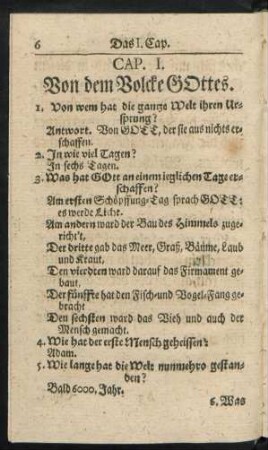 6 Das I. Cap.
CAP. I.
Von dem Volcke GOttes.
1. Von wem hat die gantze Welt ihren Ur-
sprung?
Antwort. Von GOTT, der sie aus nichts er-
schaffen.
2. In wie viel Tagen?
In sechs Tagen.
3. Was hat GOtt an einem ieglichen Tage er-
schaffen?
Am ersten Schöpffung-Tag sprach GOTT:
es werde Licht.
Am andern ward der Bau des Himmels zuge-
richt't,
Der dritte gab das Meer, Graß, Bäume, Laub
und Kraut,
Den vierdten ward darauf das Firmament ge-
baut,
Der fünffte hat den Fisch-und Vogel-Fang ge-
bracht
Den sechsten ward das Vieh und auch der
Mensch gemacht.
4. Wie hat der erste Mensch geheissen?
Adam.
5. Wie lange hat die Welt nunmehro gestan-
den?
Bald 6000. Jahr.
6. Was